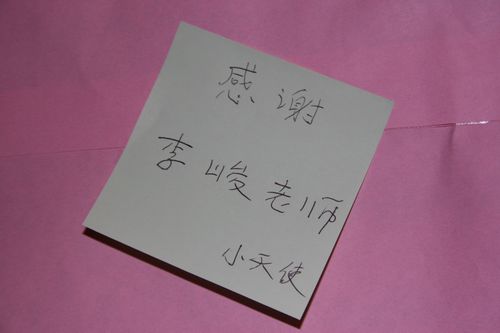 感谢
李峻老师
小天使